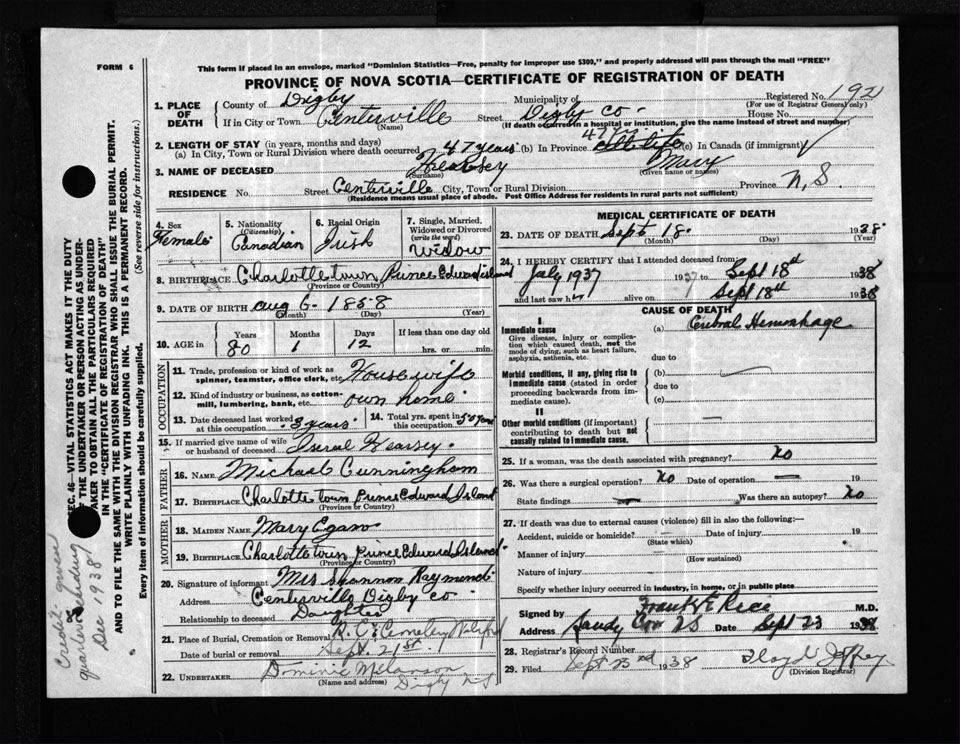 FORM 6
This form if placed in an envelope, marked "Dominion Statistics—Free, penalty for improper use $300," and properly addressed will pass through the mail "FREE"
PROVINCE OF NOVA SCOTIA—CERTIFICATE OF REGISTRATION OF DEATH
Registered No. 192
(For use of Registrar General only)
1. PLACE OF DEATH
County of Digby Municipality of Digby Co.
If in City or Town Centerville Street House No.
(Name) (If death occurred in a hospital or institution, give the name instead of street and number)
2. LENGTH OF STAY (in years, months and days)
(a) In City, Town or Rural Division where death occurred 47 years (b) In Province 47 yrs (c) In Canada (if immigrant)
3. NAME OF DECEASED Mary
(Surname) (Given name or names)
RESIDENCE No. Street Centerville City, Town or Rural Division Province N.S.
(Residence means usual place of abode. Post Office Address for residents in rural parts not sufficient)
4. Sex Female
5. Nationality (Citizenship) Canadian
6. Racial Origin Irish
7. Single, Married, Widowed or Divorced (write the word) Widow
8. BIRTHPLACE Charlottetown Prince Edward Island
(Province or Country)
9. DATE OF BIRTH Aug 6 1858
(Month) (Day) (Year)
10. AGE in Years 80 Months 1 Days 12 If less than one day old hrs. or min.
OCCUPATION
11. Trade, profession or kind of work as spinner, teamster, office clerk, etc. Housewife
12. Kind of industry or business, as cotton-mill, lumbering, bank, etc. own home
13. Date deceased last worked at this occupation 3 years
14. Total yrs. spent in this occupation
15. If married give name of wife or husband of deceased
FATHER
16. NAME Michael Cunningham
17. BIRTHPLACE Charlottetown Prince Edward Island
(Province or Country)
MOTHER
18. MAIDEN NAME Mary Egan
19. BIRTHPLACE Charlottetown Prince Edward Island
(Province or Country)
20. Signature of informant Mrs Shannon Raymond
Address Centerville Digby Co
Relationship to deceased Daughter
21. Place of Burial, Cremation or Removal R.C. Cemetery
Date of burial or removal Sept. 21st.
22. UNDERTAKER Dominic Melanson
(Name and address) Digby NS
MEDICAL CERTIFICATE OF DEATH
23. DATE OF DEATH Sept 18. 1938
(Month) (Day) (Year)
24. I HEREBY CERTIFY that I attended deceased from
July 1937 to Sept 18th 1938
and last saw her alive on Sept 18th 1938
CAUSE OF DEATH
I
Immediate cause
Give disease, injury or complication which caused death, not the mode of dying, such as heart failure, asphyxia, asthenia, etc.
(a) Cerebral Hemorrhage
due to
Morbid conditions, if any, giving rise to immediate cause (stated in order proceeding backwards from immediate cause).
(b)
due to
(c)
II
Other morbid conditions (if important) contributing to death but not causally related to immediate cause.
25. If a woman, was the death associated with pregnancy? No
26. Was there a surgical operation? No Date of operation — 19
State findings — Was there an autopsy? No
27. If death was due to external causes (violence) fill in also the following:
Accident, suicide or homicide? Date of injury 19
(State which)
Manner of injury
(How sustained)
Nature of injury
Specify whether injury occurred in industry, in home, or in public place
Signed by Frank E Rice M.D.
Address Sandy Cove NS Date Sept 23 1938
28. Registrar's Record Number
29. Filed Sept 23rd 1938 Floyd
(Division Registrar)
SEC. 46—VITAL STATISTICS ACT MAKES IT THE DUTY
OF THE UNDERTAKER OR PERSON ACTING AS UNDER-
TAKER TO OBTAIN ALL THE PARTICULARS REQUIRED
IN THE "CERTIFICATE OF REGISTRATION OF DEATH"
AND TO FILE THE SAME WITH THE DIVISION REGISTRAR WHO SHALL ISSUE THE BURIAL PERMIT.
WRITE PLAINLY WITH UNFADING INK. THIS IS A PERMANENT RECORD.
Every item of information should be carefully supplied. (See reverse side for instructions.)
Credit given
quarter ending
Dec 1938